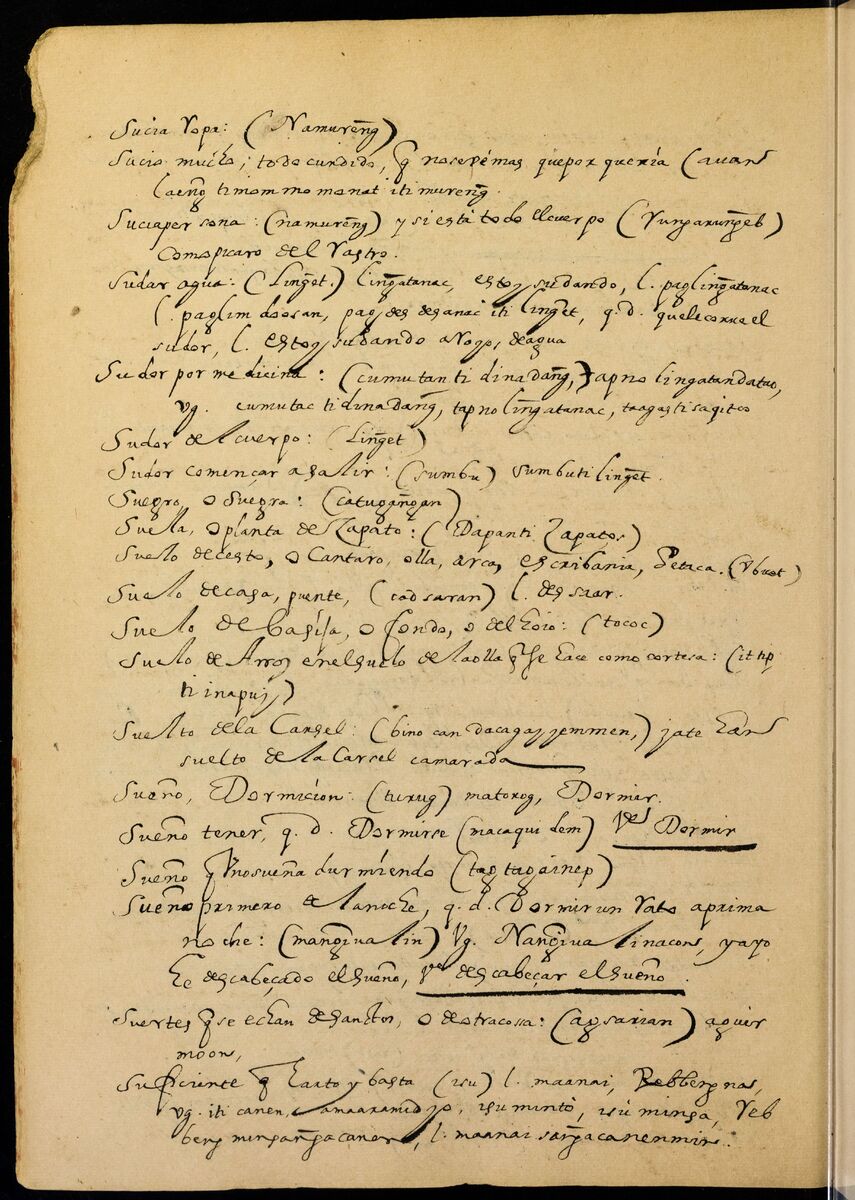 Sucia ropa: (Namureng̃)
Sucio mucho, todo cundido, q̃ no se ve mas que porqueria (auans
laeng̃ ti mommomonat iti mureng̃.
Sucia persona: (namureng̃) y si està todo el cuerpo (Yungarung̃eb)
Como picaro del Rastro.
Sudar agua: (Ling̃et.) ling̃atanac, estoy sudando, l. pagling̃atanac
l. paglimdoosan, pagdesdesanac iti ling̃et, q. d. que le corre el
sudor, l. estoy sudando arroyos de agua
Sudor por medicina: (cumutan ti dinadang̃,) tapno lingatandatao,
vg. cumutac ti dinadang̃, tapno ling̃atanac, taagasti saqitco
Sudor del cuerpo: (Ling̃et)
Sudor començar a salir: (sumbu) sumbuti ling̃et.
Suegro, o Suegra: (catugang̃an)
Suela, o planta de Zapato: (Dapanti Zapatos)
Suelo de cesto, o Cantaro, olla, arca, escribania, Petaca. (Vbuet)
Suelo de casa, puente, (cadsaran) l. dessaar.
Suelo de basija, o fondo, o del hoio: (tococ)
Suelo de Arroz en el suelo de la olla q̃ se hace como cortesa: (ittip
ti inapuy,)
Suelto dela Carsel: (binocan dacagayyemmen,) jate hãs
suelto de la Carsel camarada
Sueño, Dormicion: (turug) matorog, Dormir.
Sueño tener, q. d. Dormirse (macaquidem) Ve Dormir
Sueño q̃ Vno sueña durmiendo (tagtagainep)
Sueño primero de la noche, q. d. Dormir un rato a prima
noche: (mang̃iualin) Vg. Nang̃iualinacon, ya yo
he descabeçado el sueño, Ve descabeçar el sueño.
Suertes q̃ se echan de sanctos, o de otra cossa: (agsarian) aguir
moon,
Suficiente q̃ harto y basta (isu) l. maanai, Rebbeng nas,
vg. iti canen, amaaramidyo, isu mintò, isú minsa, Reb
beng minsang̃a canen, l. maanai sang̃a canenmin.